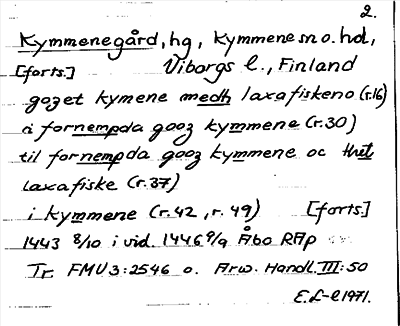 2.
Kymmenegård, hg, Kymmene sn o. hd,
[forts.] Viborgs l., Finland
gozet kymene medh laxafiskeno (r.16)
a fornempda gooz kymmene (r.30)
til fornempda gooz kymmene oc thet
laxafiske (r.37)
i kymmene (r.42, r.49) [forts.]
1443 8/10 i vid. 1446 9/9 Åbo RAp
Tr. FMU 3:2546 o. Arw. Handl. III:50
E.L-l 1971.